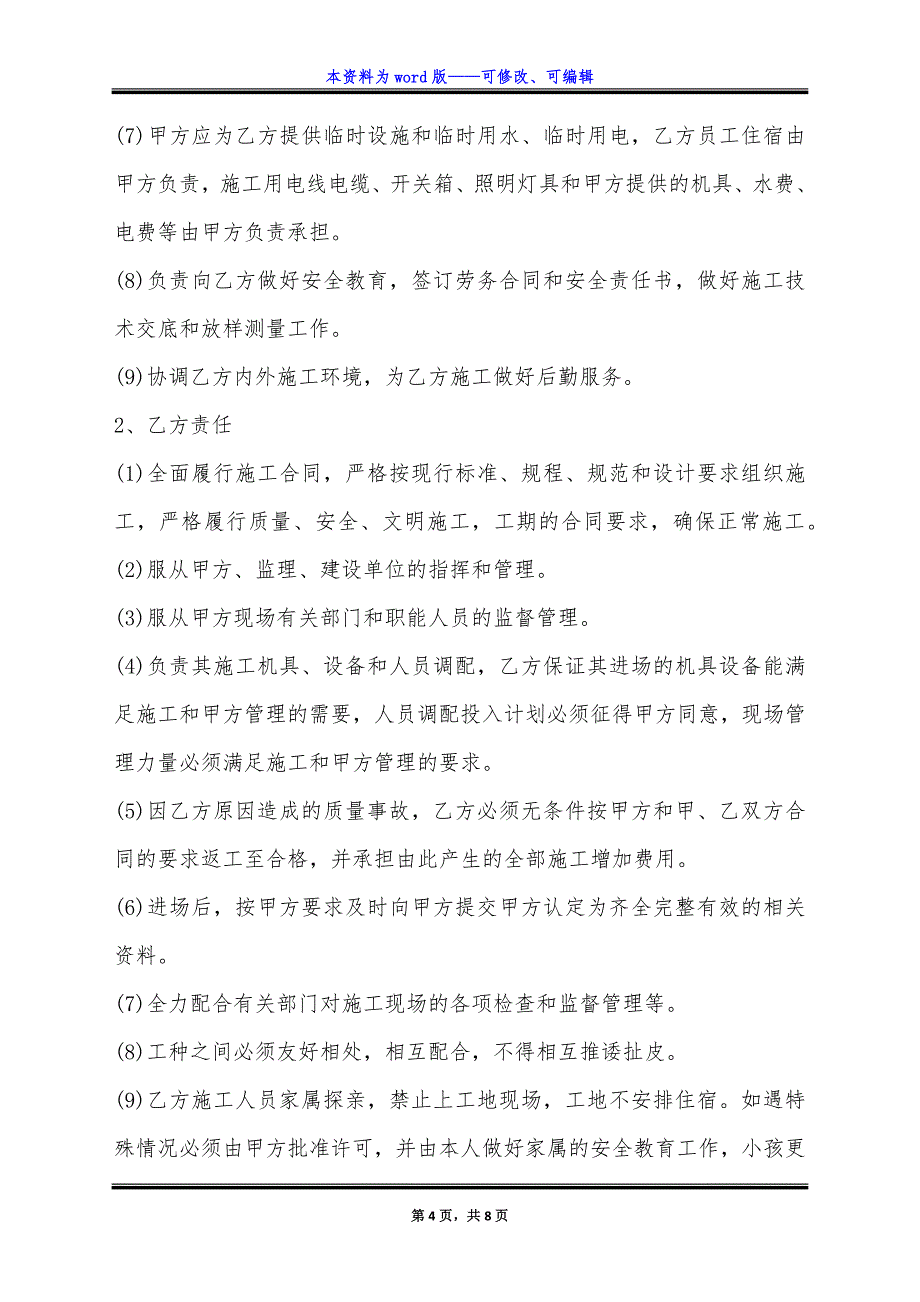 本资料为 word 版——可修改、可编辑
(7)甲方应为乙方提供临时设施和临时用水、临时用电，乙方员工住宿由
甲方负责，施工用电线电缆、开关箱、照明灯具和甲方提供的机具、水费、
电费等由甲方负责承担。
(8)负责向乙方做好安全教育，签订劳务合同和安全责任书，做好施工技
术交底和放样测量工作。
(9)协调乙方内外施工环境，为乙方施工做好后勤服务。
2、乙方责任
(1)全面履行施工合同，严格按现行标准、规程、规范和设计要求组织施
工，严格履行质量、安全、文明施工，工期的合同要求，确保正常施工。
(2)服从甲方、监理、建设单位的指挥和管理。
(3)服从甲方现场有关部门和职能人员的监督管理。
(4)负责其施工机具、设备和人员调配，乙方保证其进场的机具设备能满
足施工和甲方管理的需要，人员调配投入计划必须征得甲方同意，现场管
理力量必须满足施工和甲方管理的要求。
(5)因乙方原因造成的质量事故，乙方必须无条件按甲方和甲、乙双方合
同的要求返工至合格，并承担由此产生的全部施工增加费用。
(6)进场后，按甲方要求及时向甲方提交甲方认定为齐全完整有效的相关
资料。
(7)全力配合有关部门对施工现场的各项检查和监督管理等。
(8)工种之间必须友好相处，相互配合，不得相互推诿扯皮。
(9)乙方施工人员家属探亲，禁止上工地现场，工地不安排住宿。如遇特
殊情况必须由甲方批准许可，并由本人做好家属的安全教育工作，小孩更
第 4 页，共 8 页